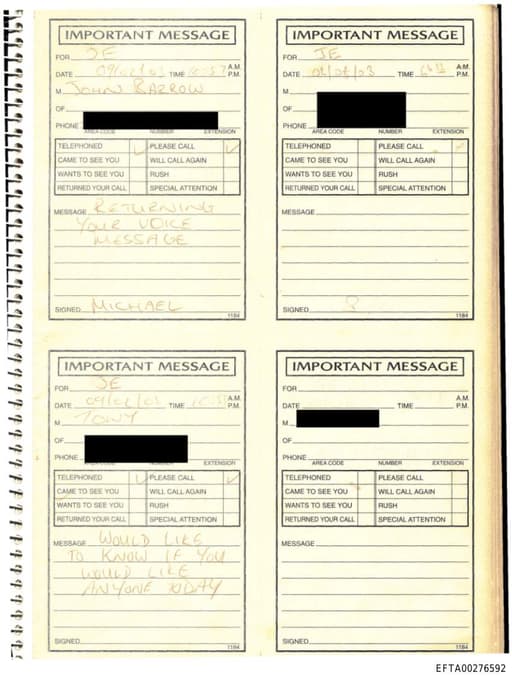 IMPORTANT MESSAGE
FOR JE
DATE 09/02/03 TIME A.M. P.M.
M JOHN BARROW
OF
PHONE
AREA CODE NUMBER EXTENSION
TELEPHONED ✓ PLEASE CALL ✓
CAME TO SEE YOU WILL CALL AGAIN
WANTS TO SEE YOU RUSH
RETURNED YOUR CALL SPECIAL ATTENTION
MESSAGE RETURNING
YOUR VOICE
MESSAGE
SIGNED MICHAEL
1184
IMPORTANT MESSAGE
FOR JE
DATE TIME A.M. P.M.
M
OF
PHONE
AREA CODE NUMBER EXTENSION
TELEPHONED PLEASE CALL ✓
CAME TO SEE YOU WILL CALL AGAIN
WANTS TO SEE YOU RUSH
RETURNED YOUR CALL SPECIAL ATTENTION
MESSAGE
SIGNED
1184
IMPORTANT MESSAGE
FOR JE
DATE 09/02/03 TIME A.M. P.M.
M TONY
OF
PHONE
AREA CODE NUMBER EXTENSION
TELEPHONED ✓ PLEASE CALL ✓
CAME TO SEE YOU WILL CALL AGAIN
WANTS TO SEE YOU RUSH
RETURNED YOUR CALL SPECIAL ATTENTION
MESSAGE WOULD LIKE
TO KNOW IF YOU
WOULD LIKE
ANYONE TODAY
SIGNED
1184
IMPORTANT MESSAGE
FOR
DATE TIME A.M. P.M.
M
OF
PHONE
AREA CODE NUMBER EXTENSION
TELEPHONED PLEASE CALL
CAME TO SEE YOU WILL CALL AGAIN
WANTS TO SEE YOU RUSH
RETURNED YOUR CALL SPECIAL ATTENTION
MESSAGE
SIGNED
1184
EFTA00276592